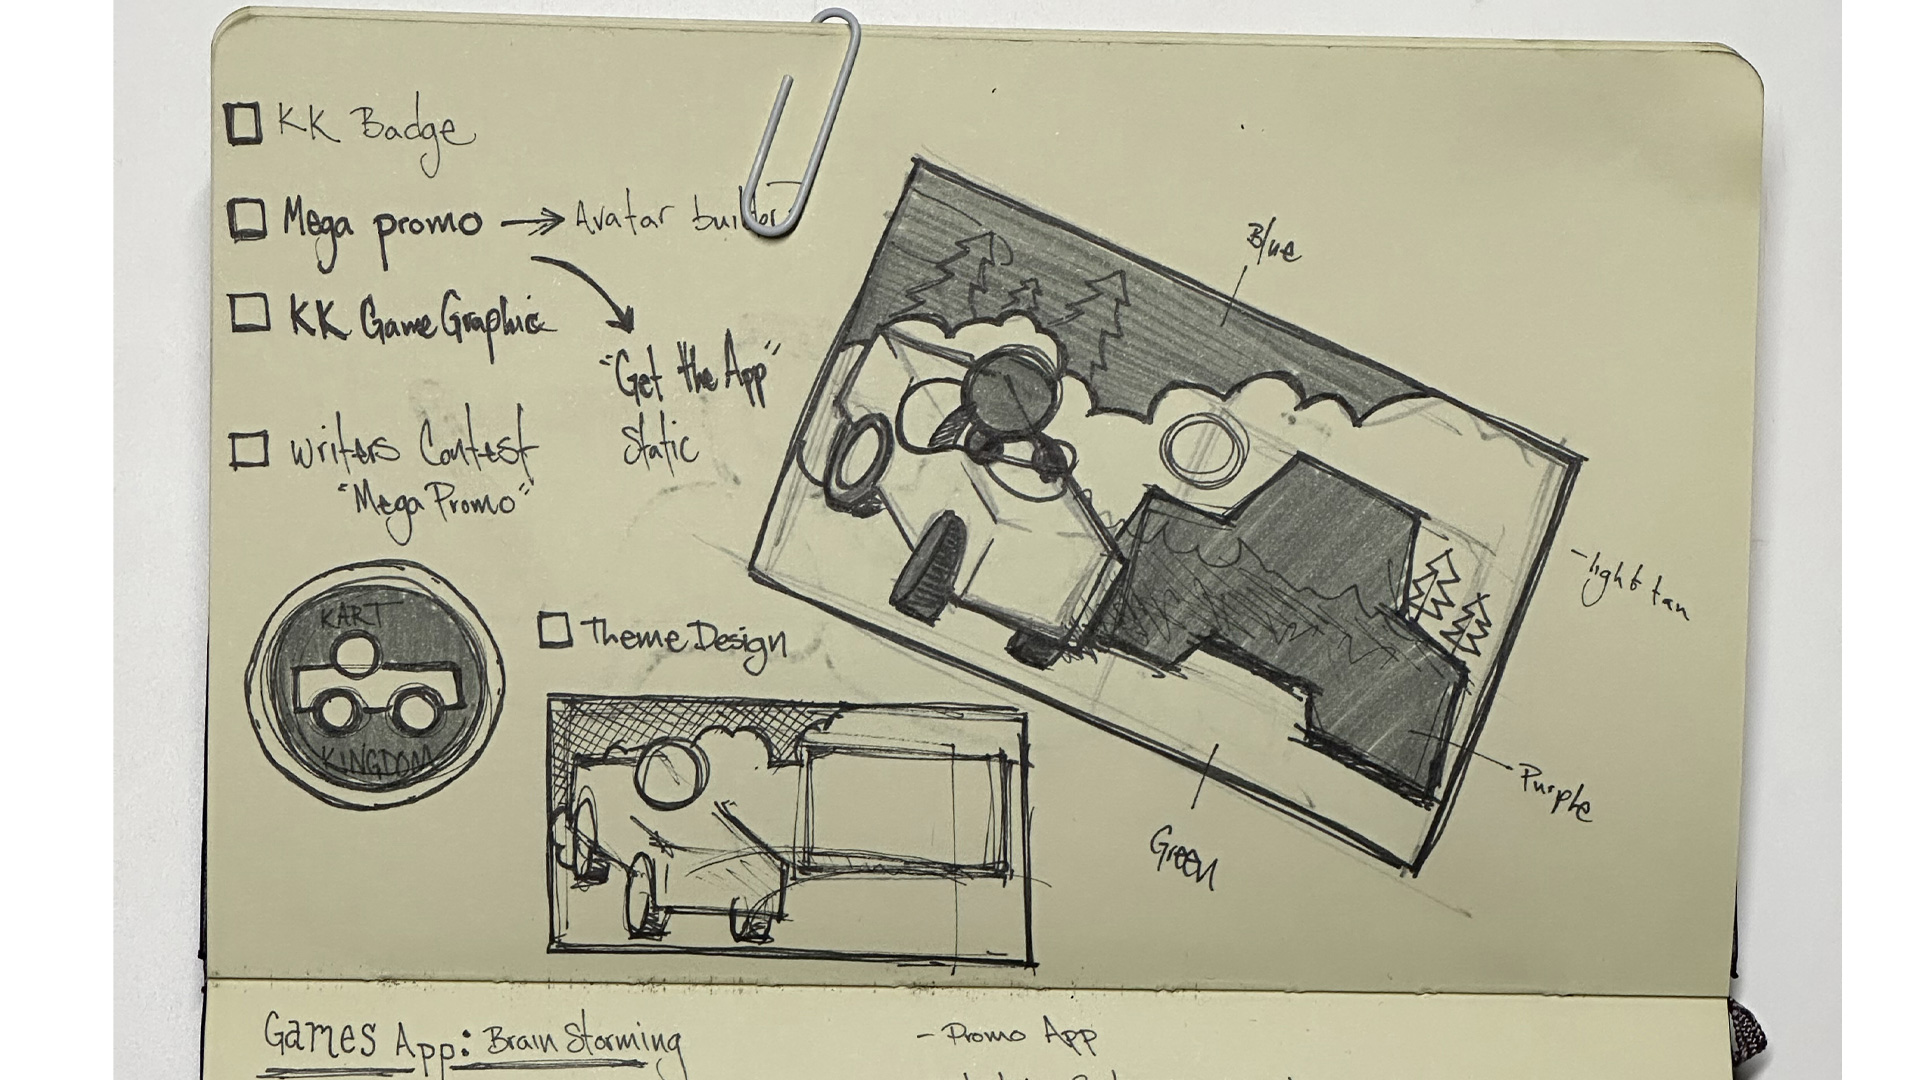 KK Badge
Mega promo → Avatar builder
KK Game Graphic
"Get the App"
Static
Writers Contest
"Mega Promo"
KART
KINGDOM
Theme Design
Blue
- light tan
Purple
Green
Games App: Brain Storming
- Promo App